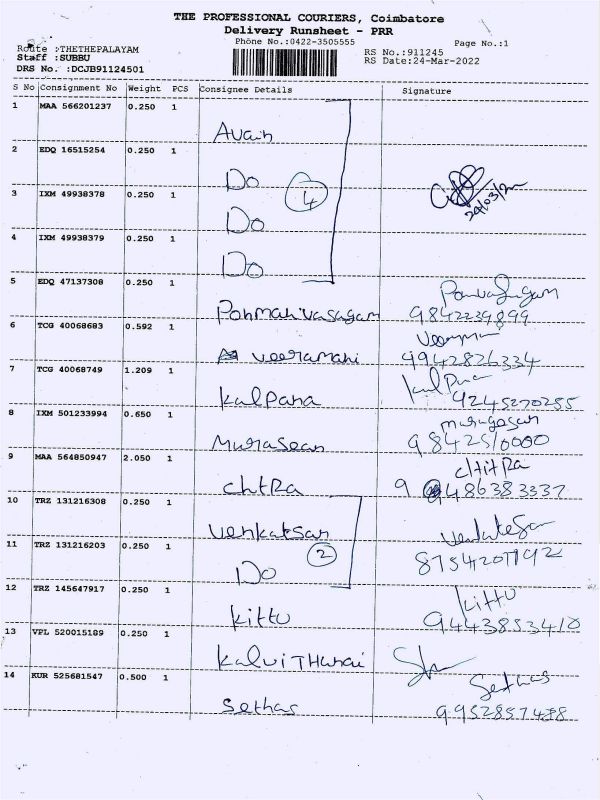 THE PROFESSIONAL COURIERS, Coimbatore
Delivery Runsheet - PRR
Phone No.:0422-3505555 Page No.:1
Route :THETHEPALAYAM
Staff :SUBBU
DRS No. :DCJB91124501
RS No.:911245
RS Date:24-Mar-2022
S No Consignment No Weight PCS Consignee Details Signature
1 MAA 566201237 0.250 1
2 EDQ 16515254 0.250 1
Do 4
3 IXM 49938378 0.250 1
24/03/22
Do
4 IXM 49938379 0.250 1
Do
5 EDQ 47137308 0.250 1
Ponmanivasagam 9842239899
6 TCG 40068683 0.592 1
veeramani 9942826334
7 TCG 40068749 1.209 1
Kalpana 9245270255
8 IXM 501233994 0.650 1
murugesan
Murasean 9842510000
9 MAA 564850947 2.050 1
chitRa
chtRa 9486383337
10 TRZ 131216308 0.250 1
Venkatsan
11 TRZ 131216203 0.250 1
Do 2
12 TRZ 145647917 0.250 1
kittu
kittu 9443853410
13 VPL 520015189 0.250 1
14 KUR 525681547 0.500 1
Sethas
Sethas